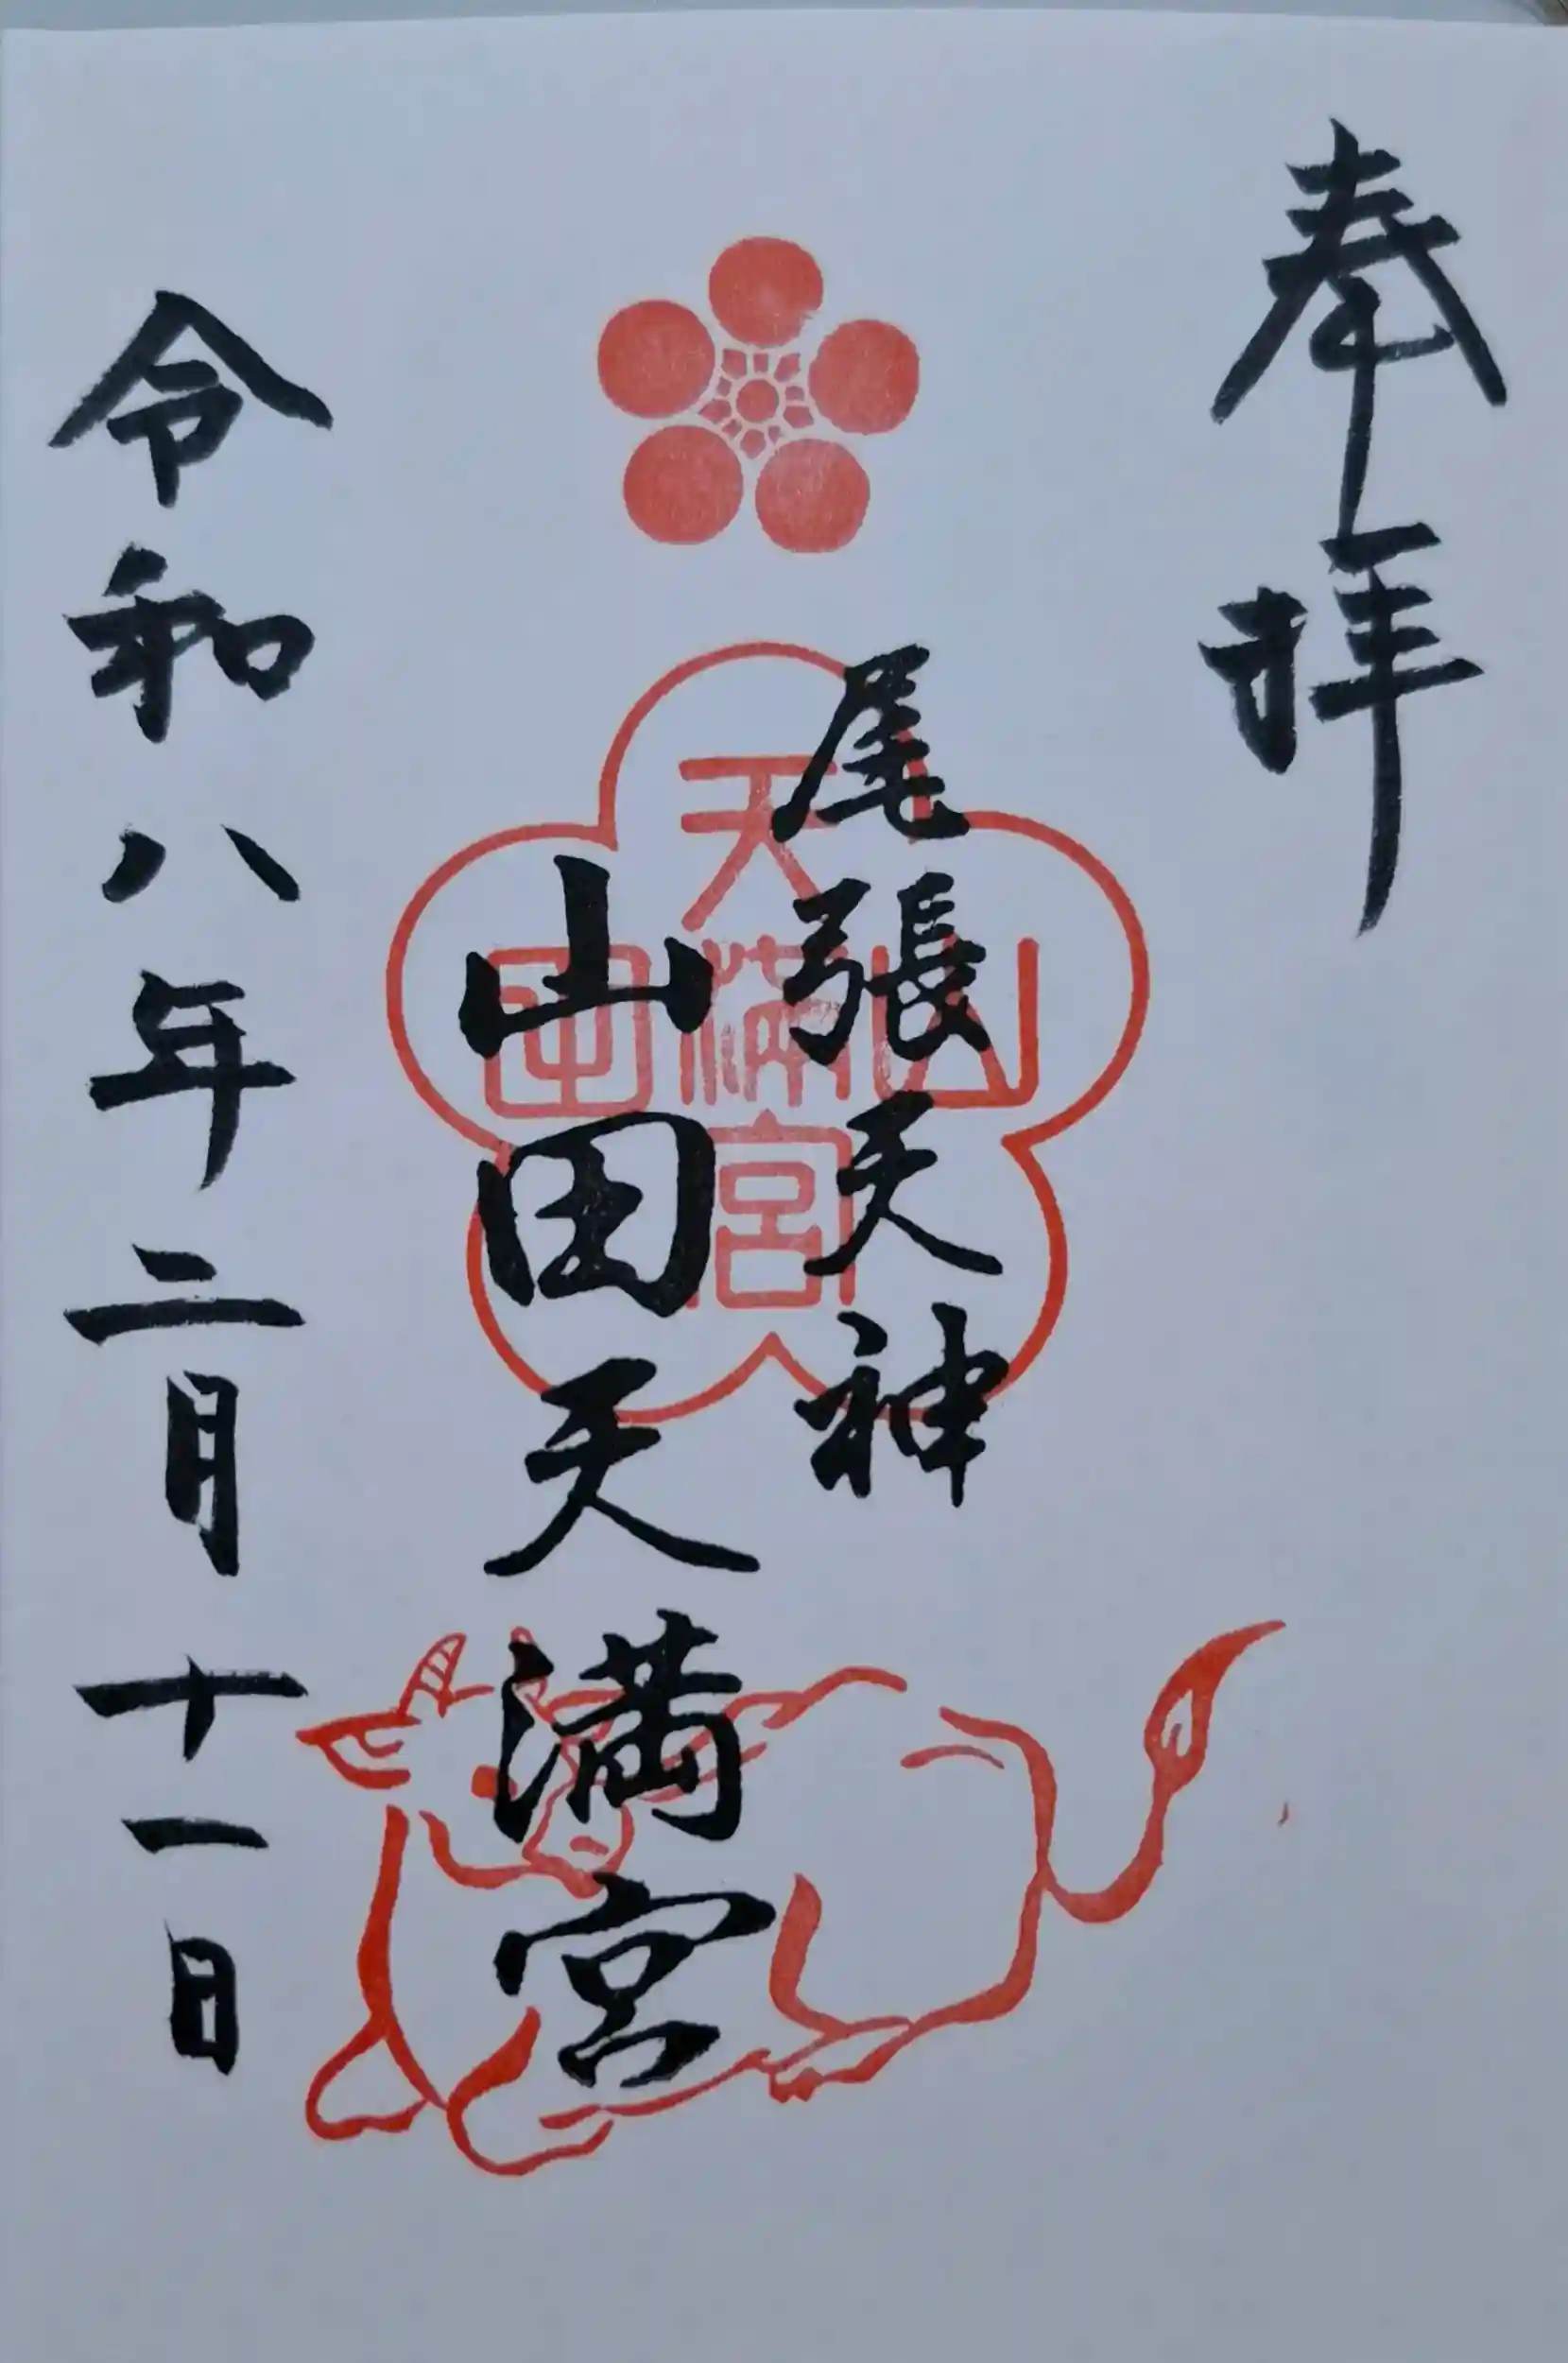 奉拝
尾張天神
山田天満宮
山田天満宮
令和八年二月十一日